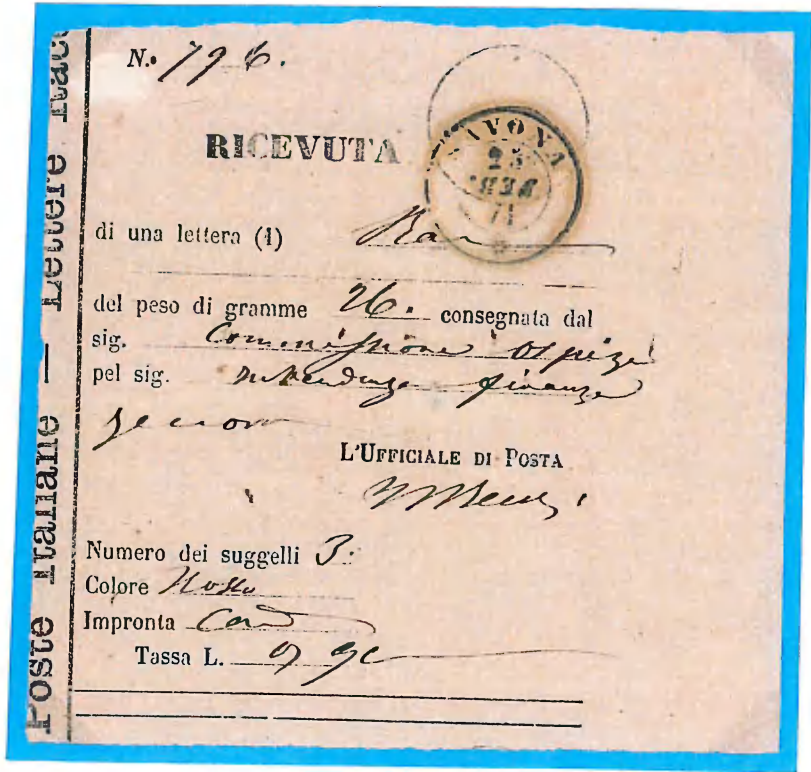 Poste Italiane — Lettere
N. 796.
RICEVUTA
SAVONA
25
71
di una lettera (1) Rac
del peso di gramme 26. consegnata dal
sig. Commissione Ospizi
pel sig. Intendenza finanze
Genova
L'UFFICIALE DI POSTA
Numero dei suggelli 3.
Colore Rosso
Impronta
Tassa L.